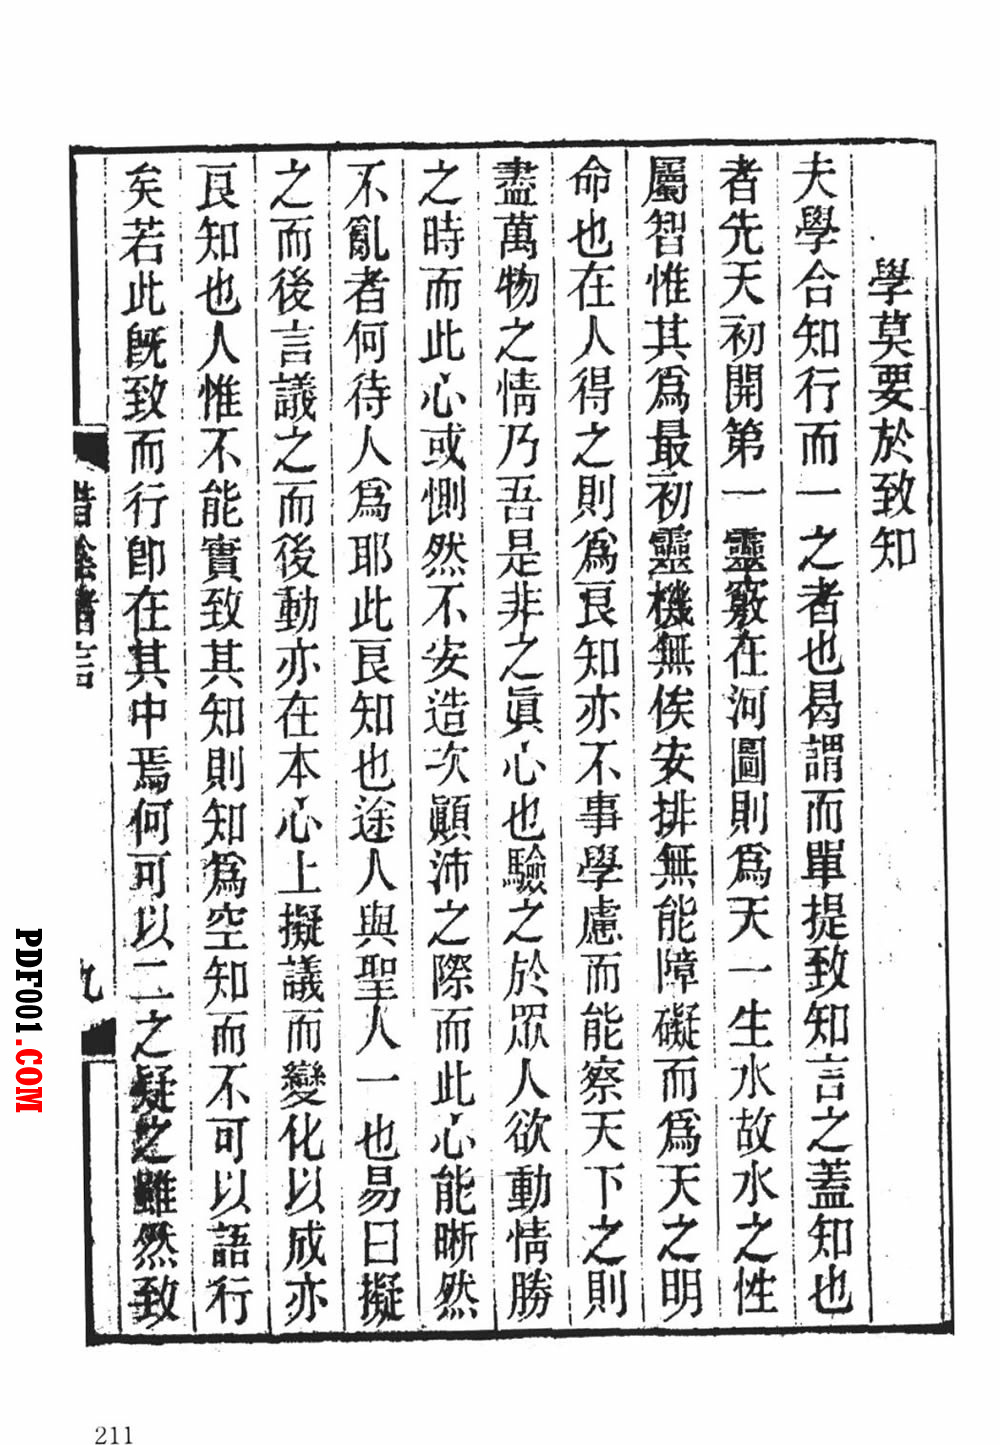 學莫要於致知
夫學合知行而一之者也曷謂而單提致知言之蓋知也
者先天初開第一靈竅在河圖則爲天一生水故水之性
屬智惟其爲最初靈機無俟安排無能障礙而爲天之明
命也在人得之則爲良知亦不事學慮而能察天下之則
盡萬物之情乃吾是非之眞心也驗之於眾人欲動情勝
之時而此心或惻然不安造次顚沛之際而此心能晰然
不亂者何待人爲耶此良知也途人與聖人一也易曰擬
之而後言議之而後動亦在本心上擬議而變化以成亦
良知也人惟不能實致其知則知爲空知而不可以語行
矣若此旣致而行卽在其中焉何可以二之疑之雖然致
九
PDF001.COM
211